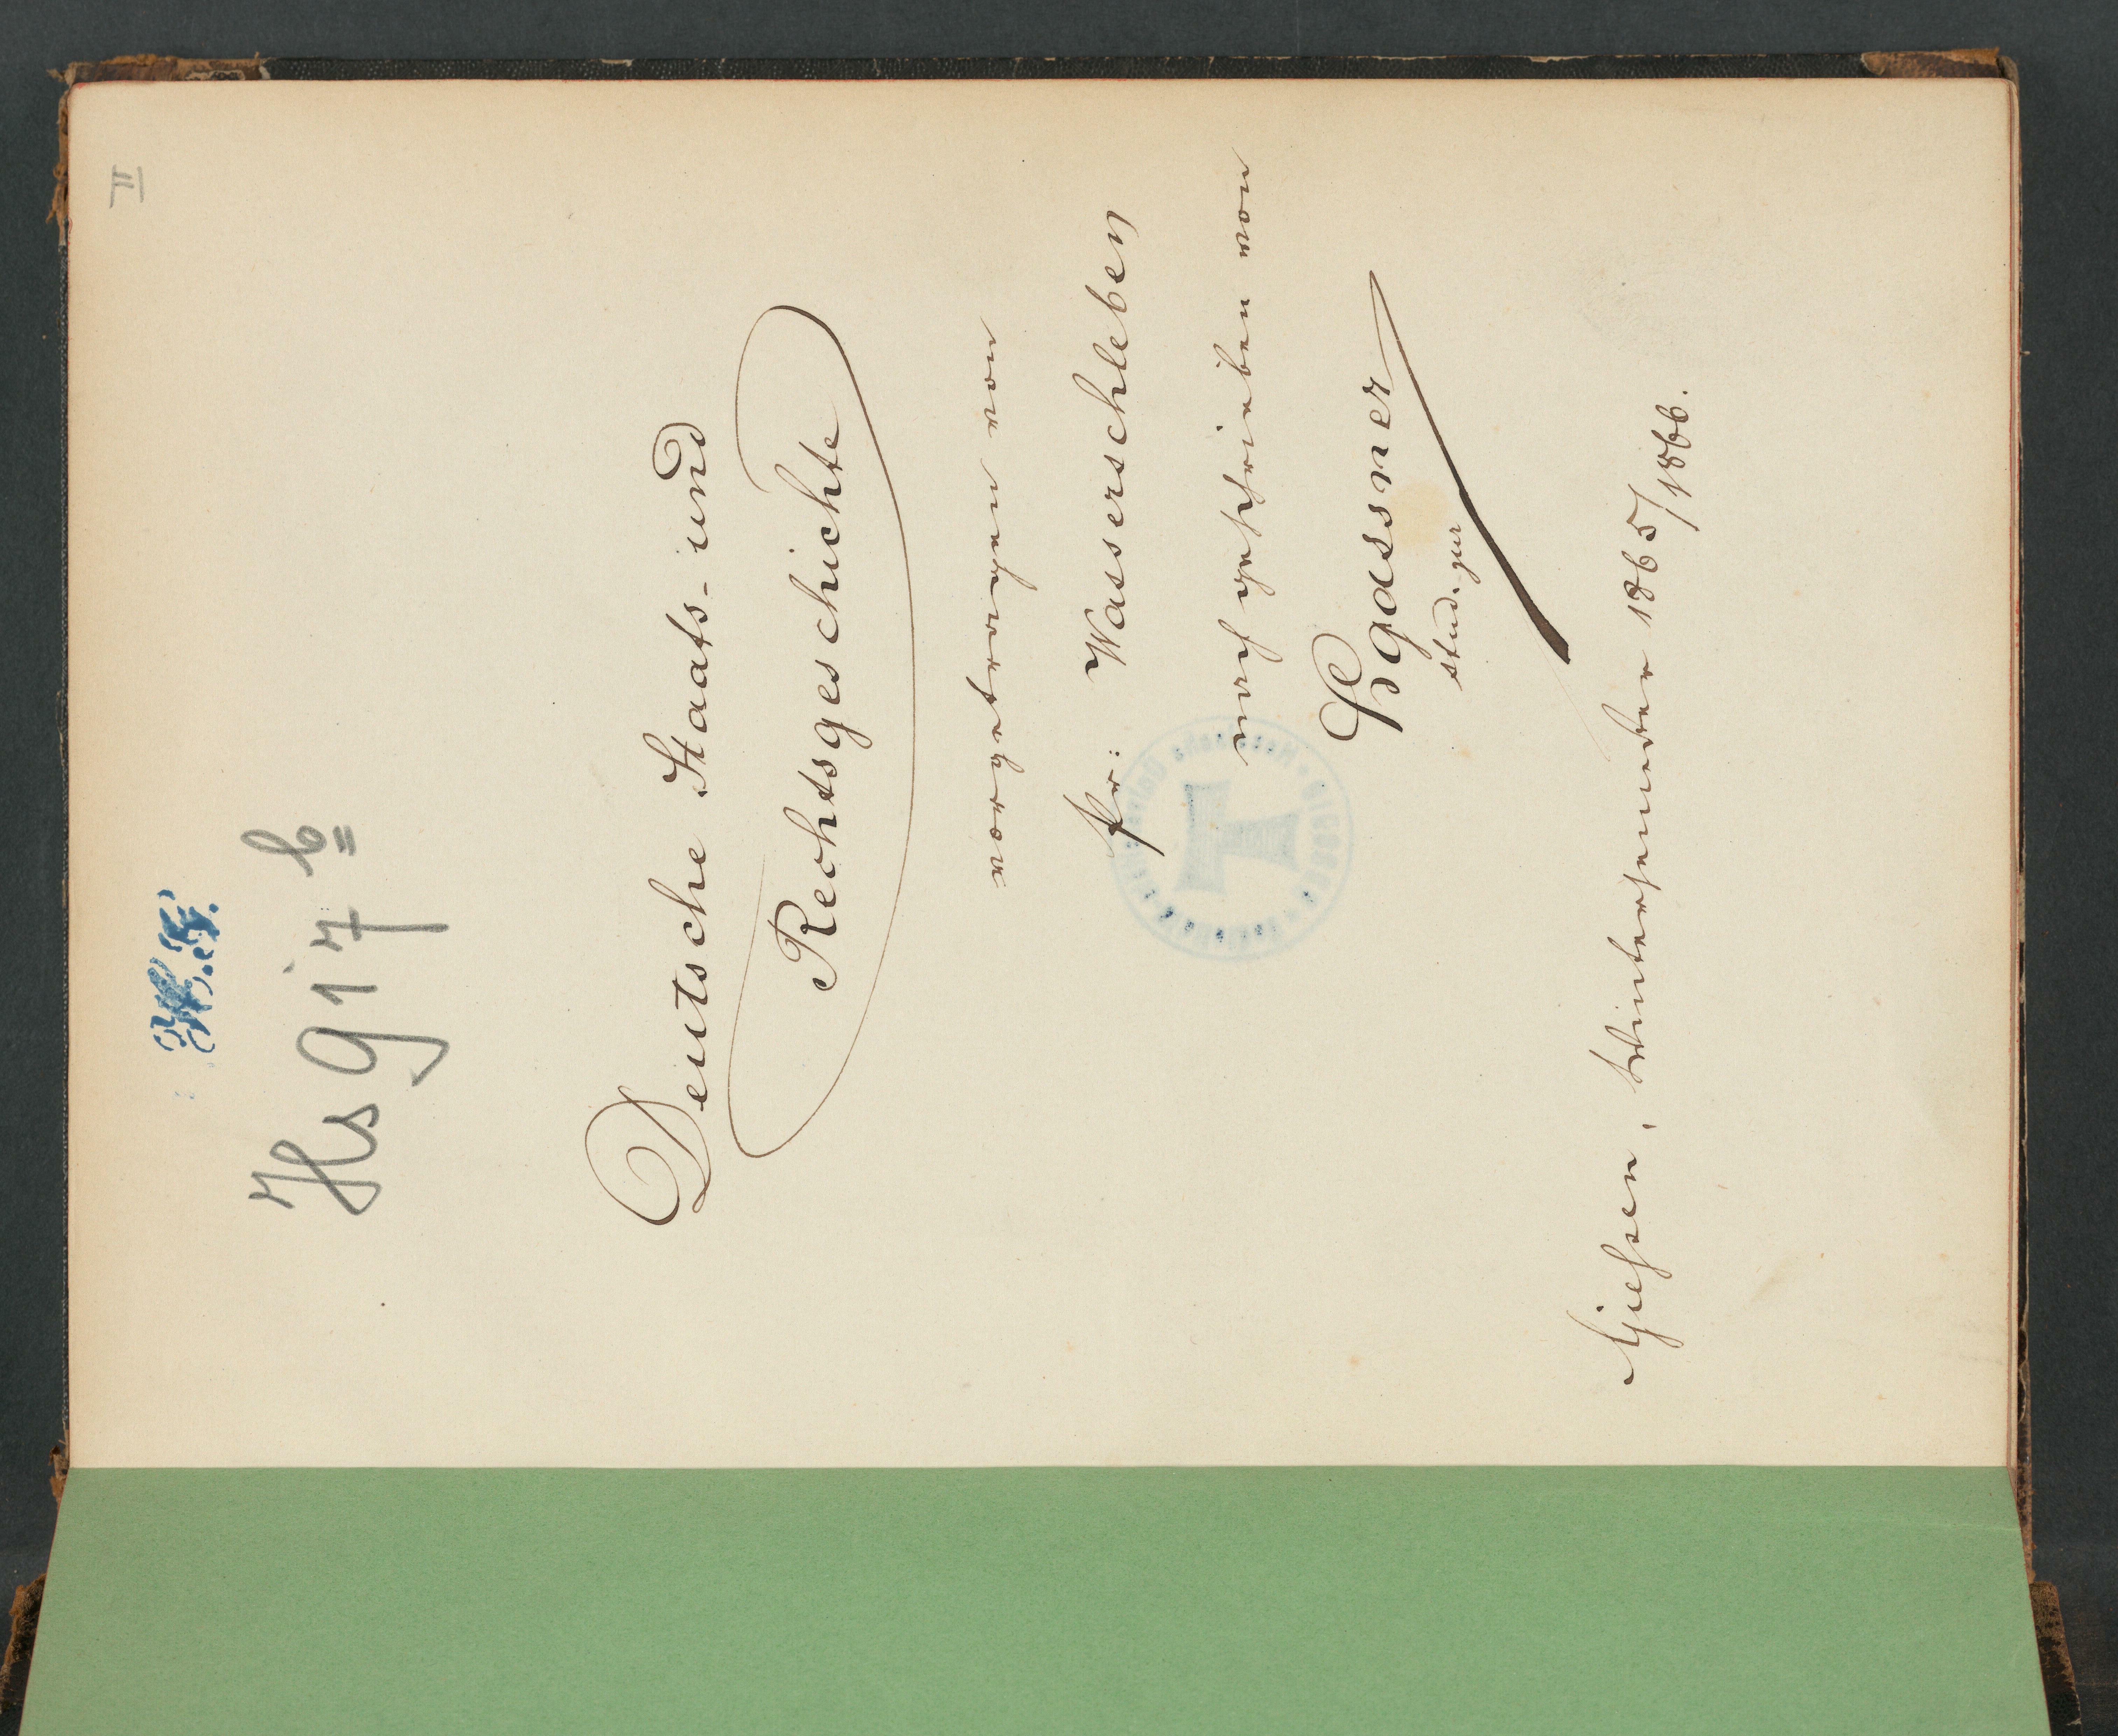 II
Hs 917 b
Deutsche Staats- und
Rechtsgeschichte
vorgetragen von
Pr: Wasserschleben
nachgeschrieben von
Lgassner
stud. jur
Gießen, Wintersemester 1865/1866.